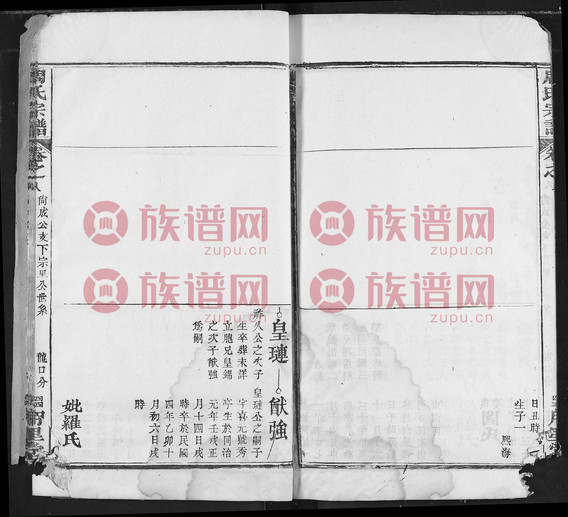 氏宗譜
卷之
日丑時
生子一
熙海
皇璉
猷強
久公之次子
生卒葬未詳
立胞兄皇錫
之次子猷強
爲嗣
皇璉公之嗣子
字喜元號秀
亭生於同治
元年壬戌正
月十四日戌
時卒於民國
四年乙卯十
月初六日戌
時
妣羅氏
周氏宗譜
卷之八
尙成公支下宗里公世系
龍口分
族谱网
zupu.cn
族谱网
zupu.cn
族谱网
zupu.cn
族谱网
zupu.cn